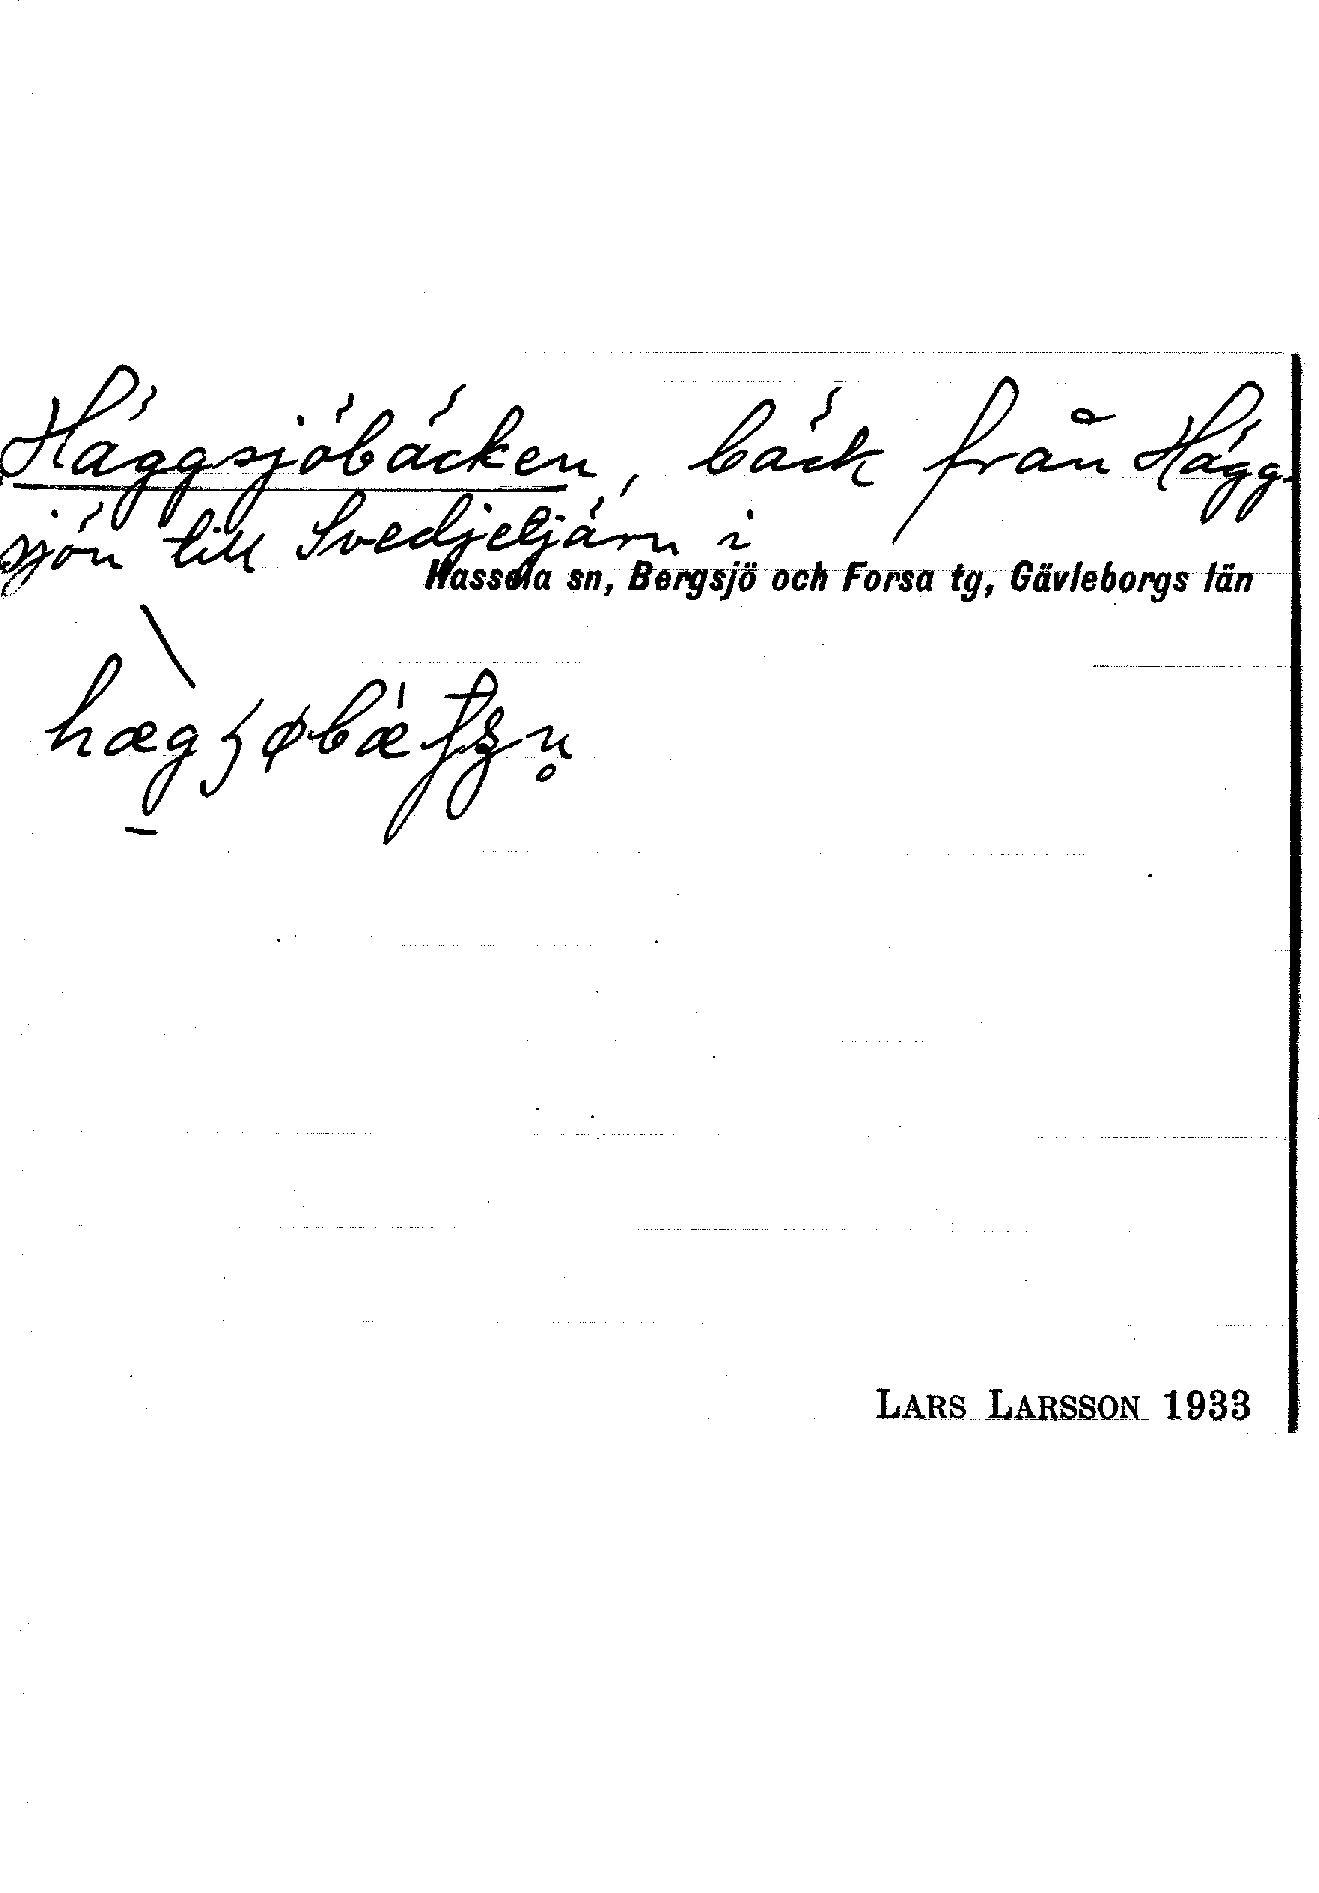 Häggsjöbäcken, bäck från Hägg-
sjön till Svedjetjärn i
Hassela sn, Bergsjö och Forsa tg, Gävleborgs län
LARS LARSSON 1933